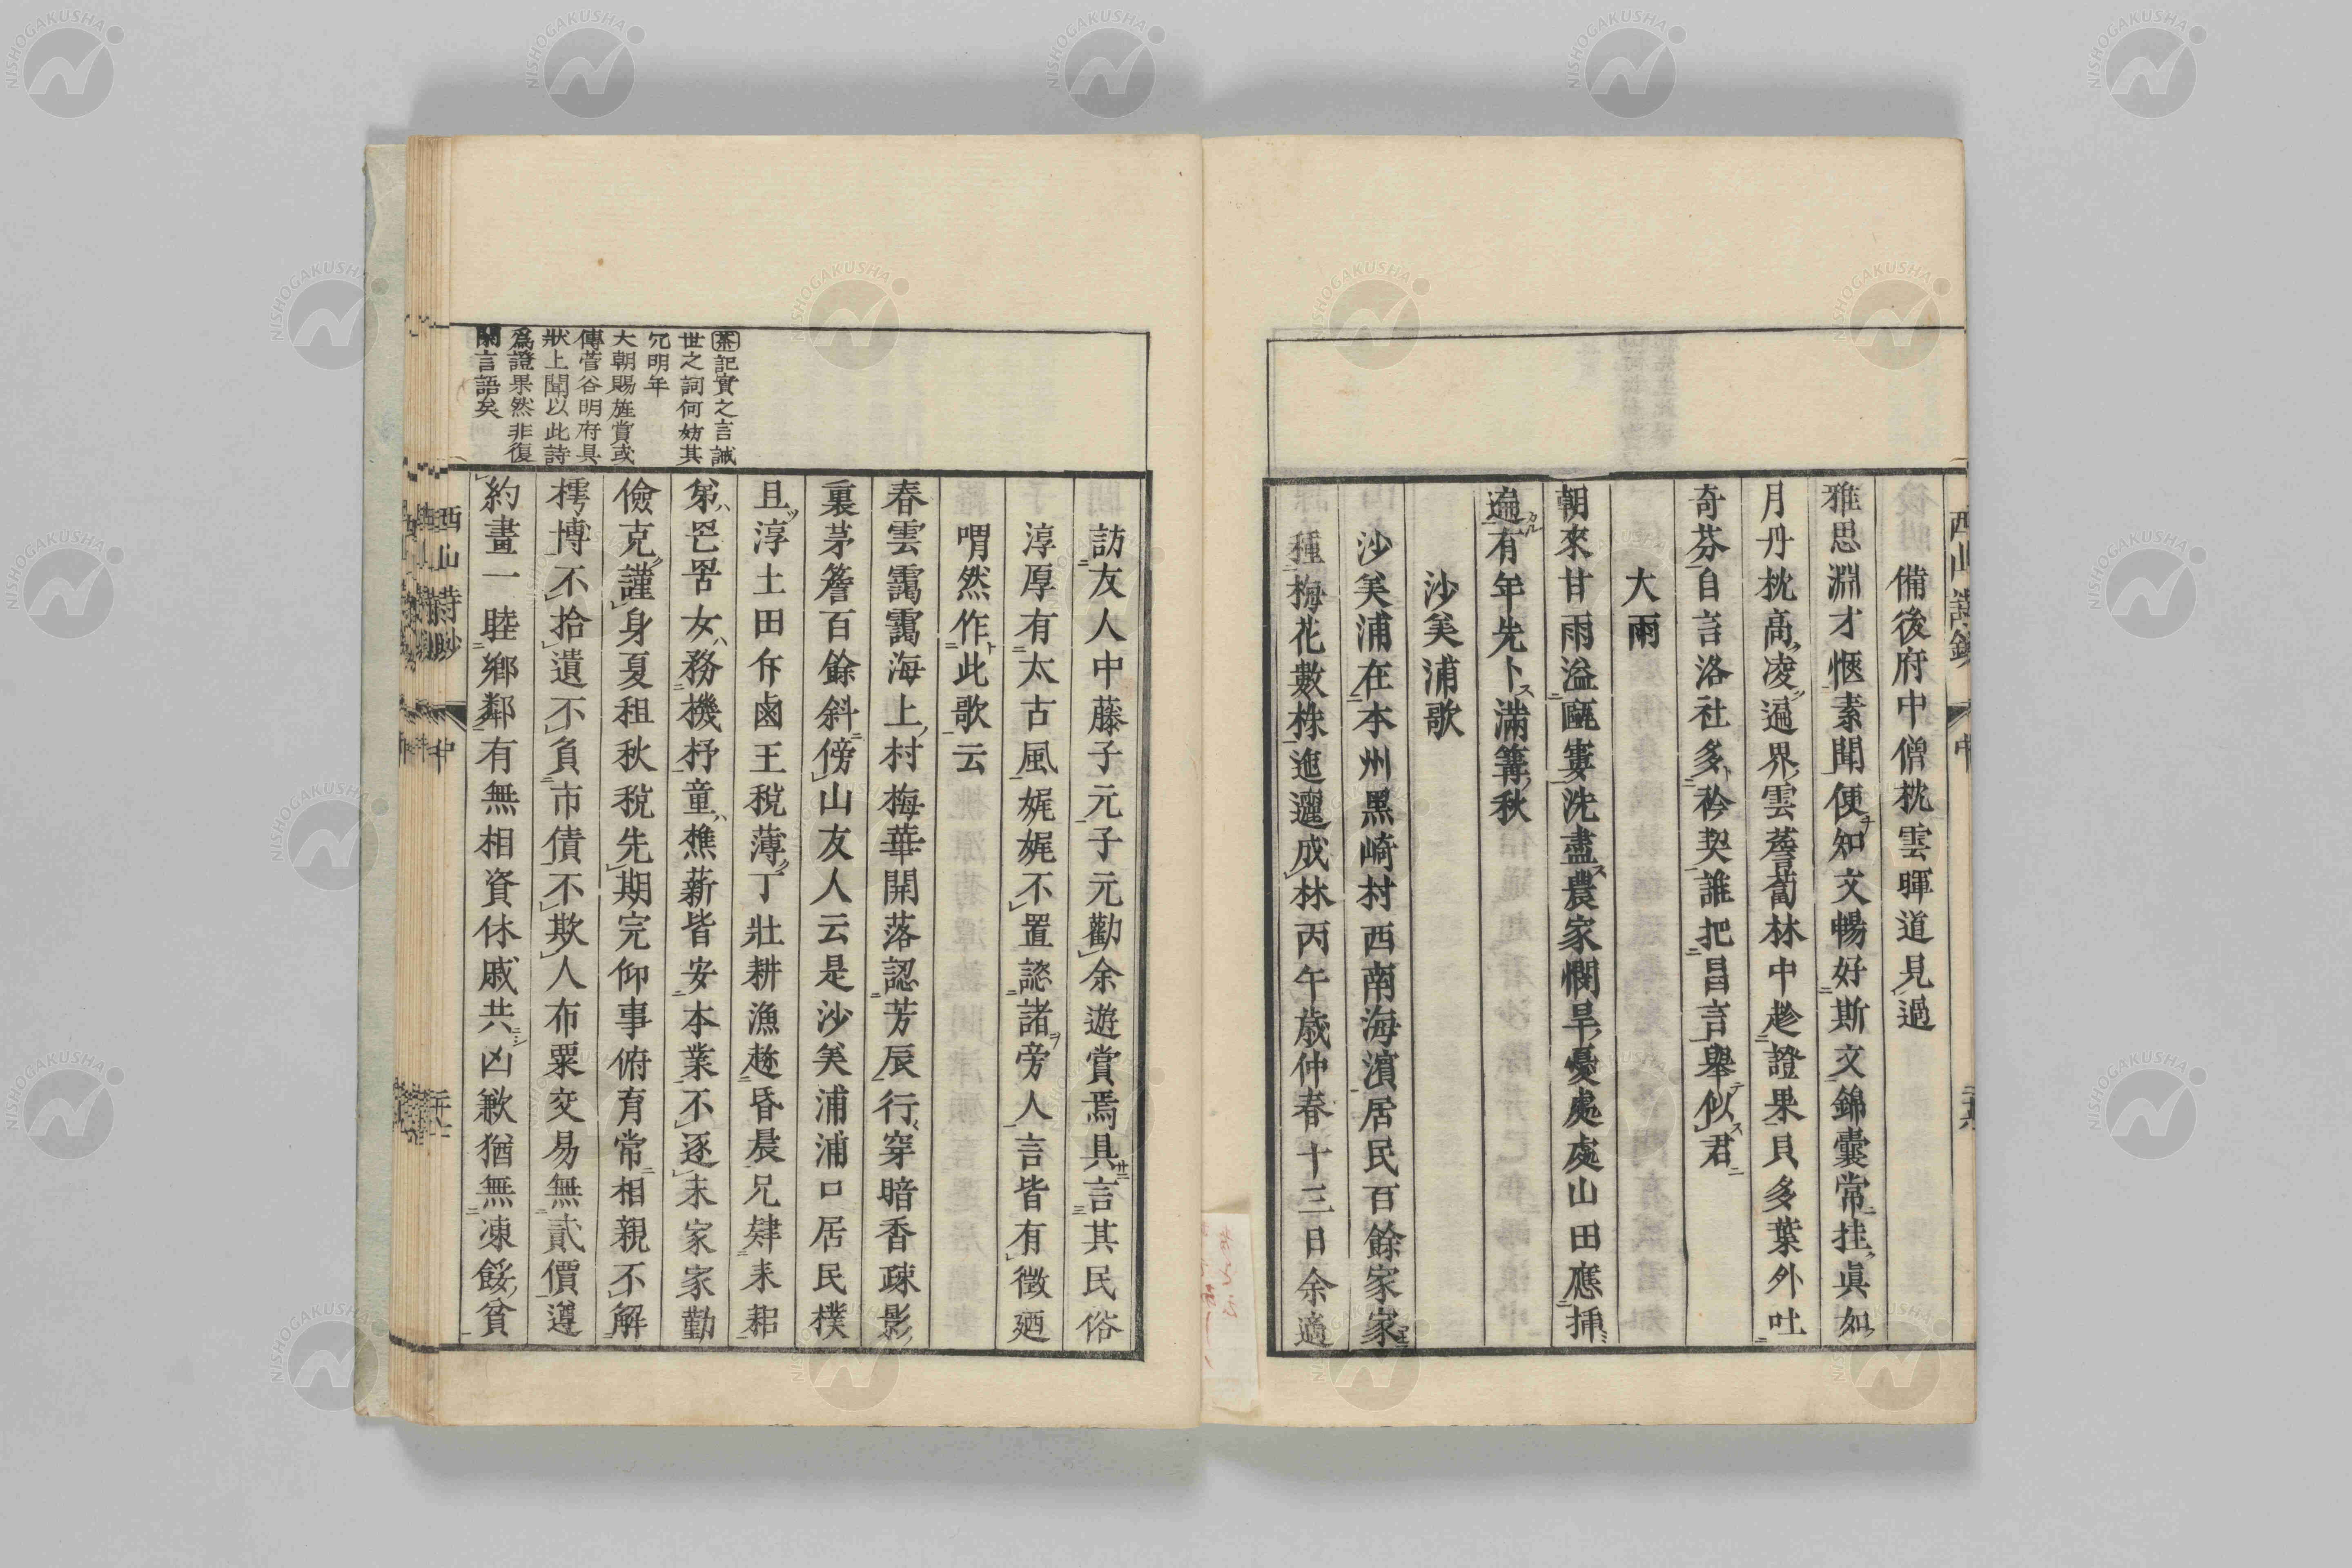 備後府中僧枕雲暉道見過
雅思淵才愜素聞便知文暢好斯文錦囊常挂眞如
月丹枕高凌遍界雲薝蔔林中趁證果貝多葉外吐
奇芬自言洛社多衿契誰把昌言舉似君
大雨
朝來甘雨溢甌窶洗盡農家憫旱憂處處山田應揷
遍有年先卜滿篝秋
沙美浦歌
沙美浦在本州黑崎村西南海濵居民百餘家家
種梅花數株迤邐成林丙午歲仲春十三日余適
訪友人中藤子元子元勸余遊賞焉具言其民俗
淳厚有太古風娓娓不置諗諸旁人言皆有徵廼
喟然作此歌云
春雲靄靄海上村梅華開落認芳辰行穿暗香疎影
裏茅簷百餘斜傍山友人云是沙美浦浦口居民樸
且淳土田斥鹵王稅薄丁壯耕漁趂昏晨兄肄耒耜
弟罟女務機杼童樵薪皆安本業不逐末家家勤
儉克謹身夏租秋稅先期完仰事俯育常相親不解
樗博不拾遺不負市債不欺人布粟交易無貳價遵
約畫一睦鄉鄰有無相資休戚共凶歉猶無凍餒貧
茶記實之言誠
世之詞何妨其
冗明年
大朝賜旌賞或
傳菅谷明府具
狀上聞以此詩
爲證果然非復
閑言語矣
西山詩鈔
中
NISHOGAKUSHA